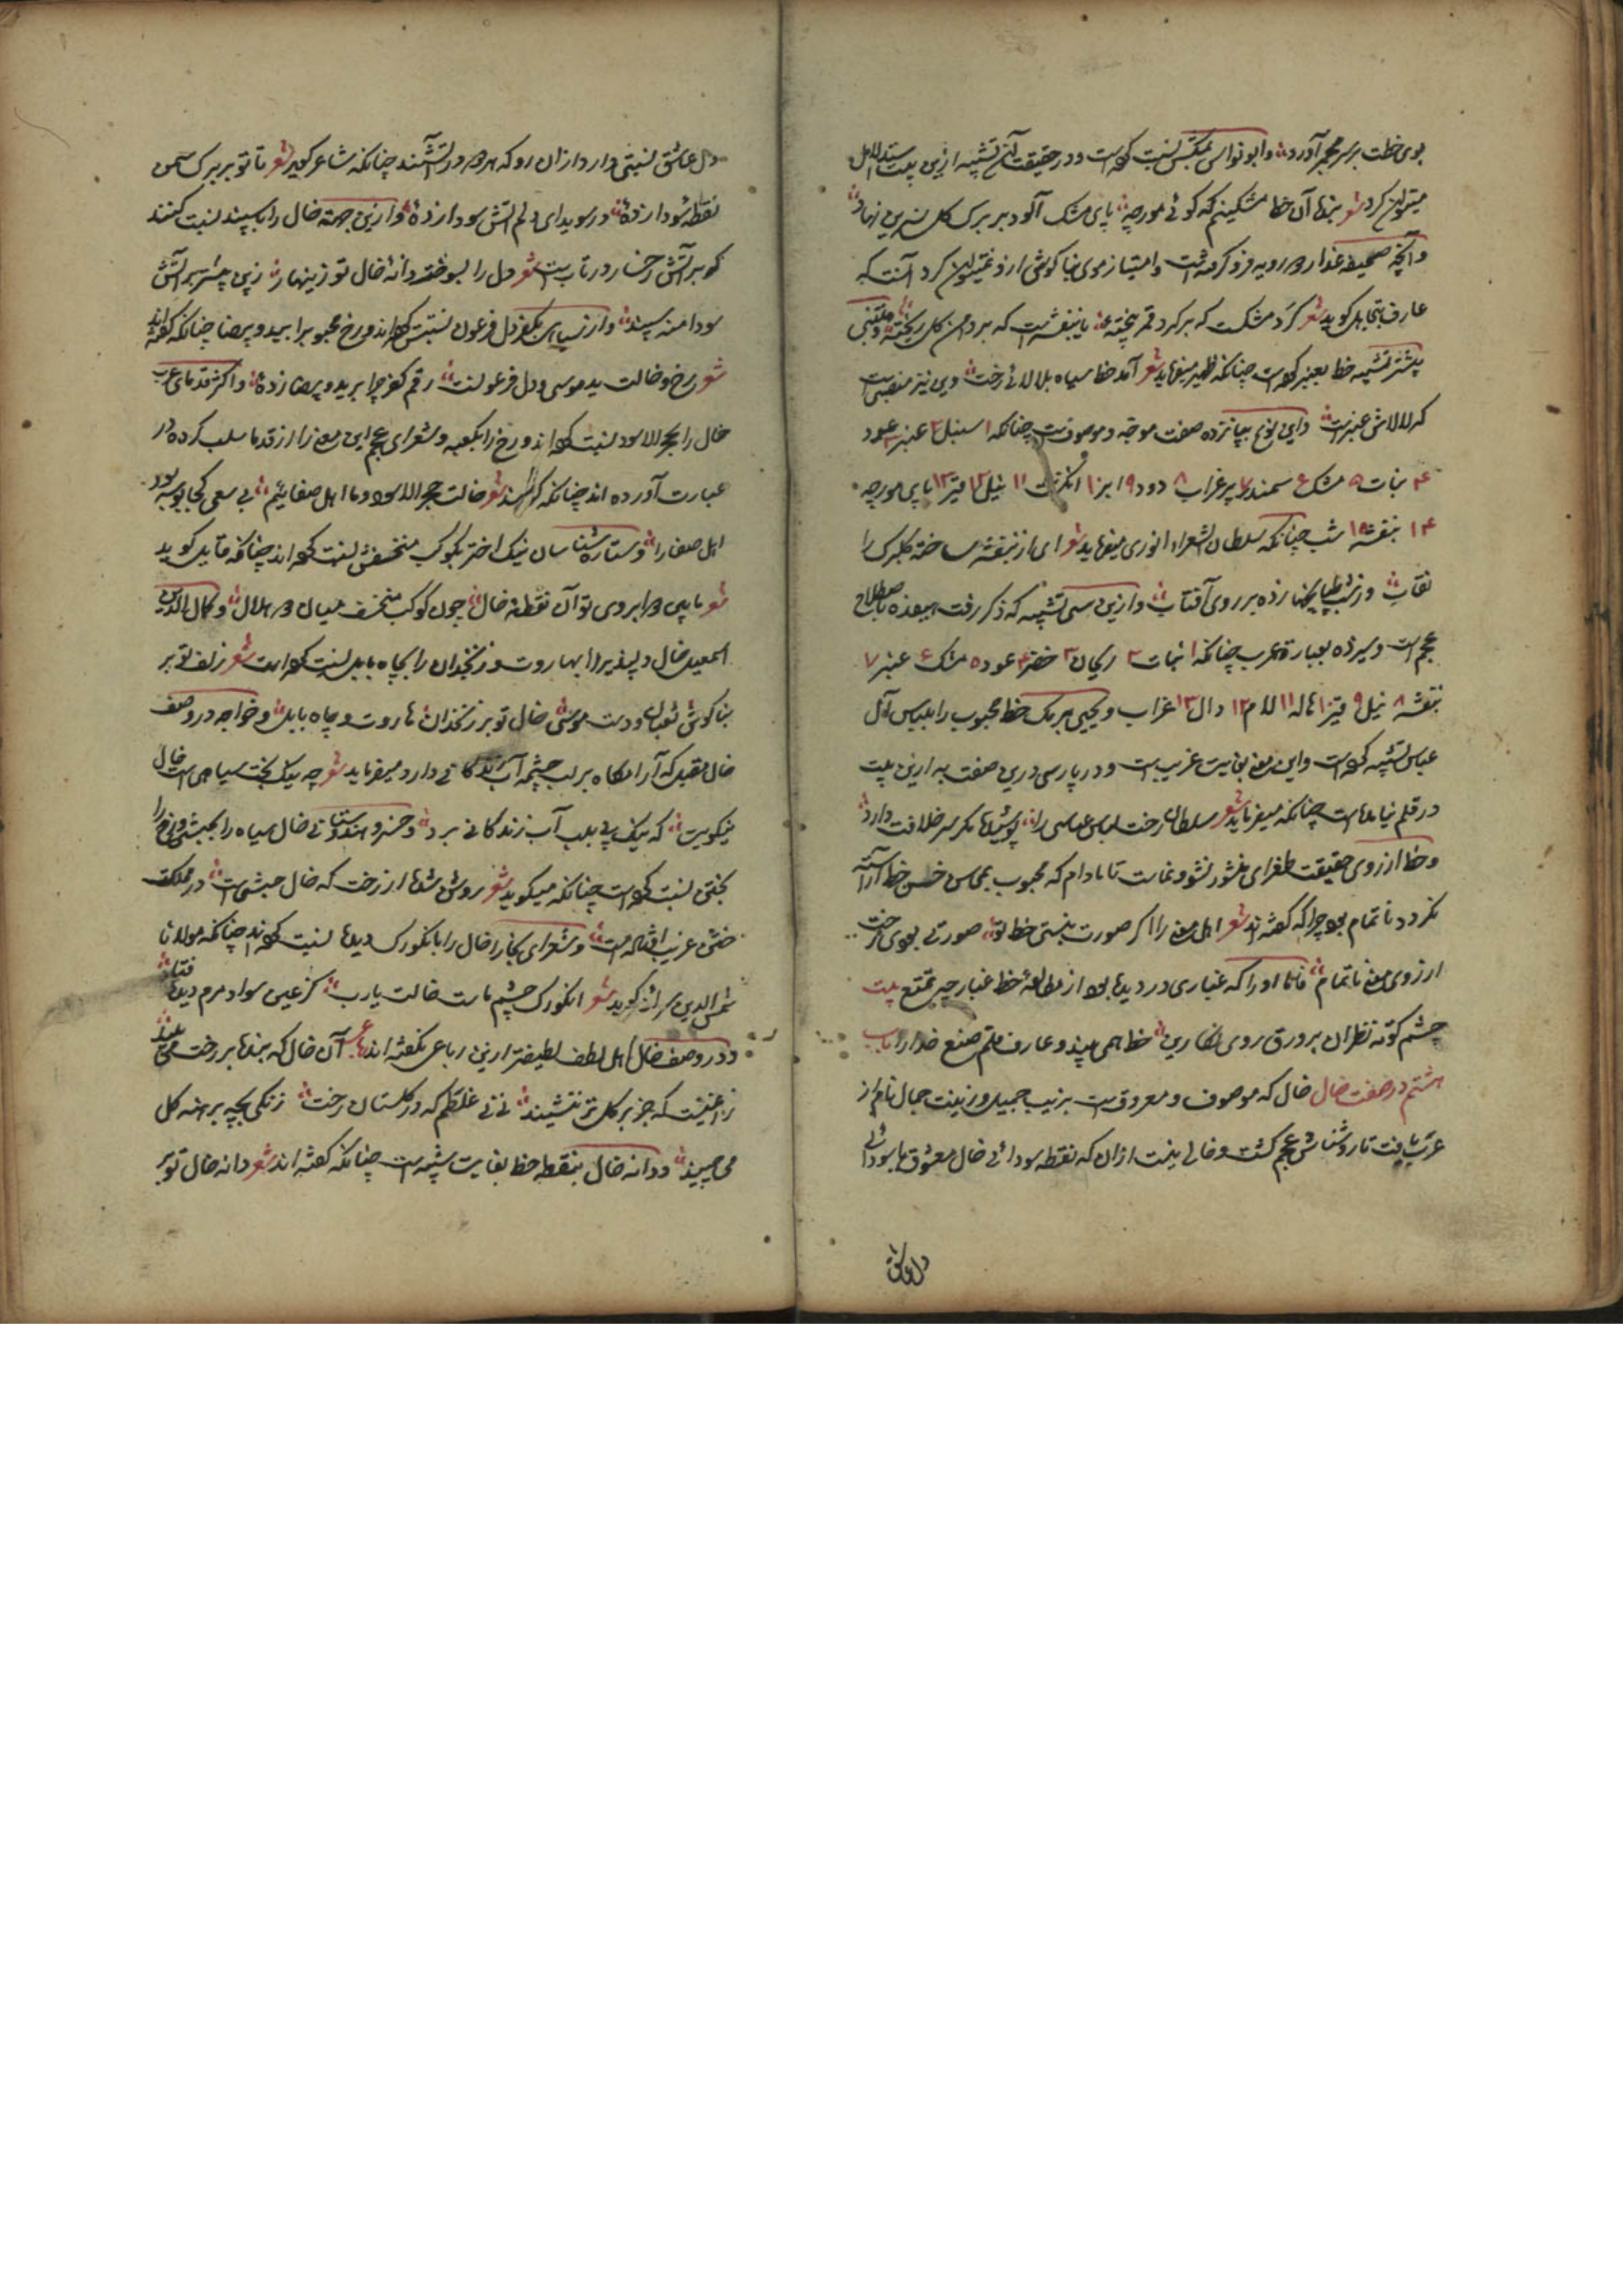 بوی خطت بر سر مجمر آورد و ابو نواس بمکتبش نسبت کرده است و در حقیقت این تشبیه ازین بیت استدلال
میتوان کرد شعر بنهاد آن خط مشکینم که کوئی مورچه پای مشک آلود بر برک کل نسرین نهاد
وآنکه صحیفه عذار رویه فرو کرفته است و امتیاز موی بناکوش ازو نمیتوان کرد آنست که
عارف بتجاهل کوید شعر کرد مشکست که بر کرد قمر بیخته یا بنفشه است که بر دامن کل ریخته و متنبی
بیشتر تشبیه خط بعنبر کرده است چنانکه ظهیر میفرماید شعر آمد خط سیاه بلالائی رخت وین نیز منصبیست
که لالاش عنبرست و این نوع بپانزده صفت موجه و موصوفست چنانکه ۱ سنبل ۲ عنبر ۳ عود
۴ نبات ۵ مشک ۶ سمندر ۷ پر غراب ۸ دود ۹ ابر ۱۰ انکشت ۱۱ نیل ۱۲ قیر ۱۳ پای مورچه
۱۴ بنفشه ۱۵ شب چنانکه سلطان الشعراء انوری میفرماید شعر ای از بنفشه ساخته کلبرک را
نقاب وز شب طپانچها زده بر روی آفتاب و ازین سی تشبیه که ذکر رفت هیفده باصطلاح
عجم است و سیزده بعبارة عرب چنانکه ۱ نبات ۲ ریحان ۳ خضر ۴ عود ۵ مشک ۶ عنبر ۷
بنفشه ۸ نیل ۹ قیر ۱۰ هاله ۱۱ لام ۱۲ دال ۱۳ غراب و یحیی برمک خط محبوب را بلباس آل
عباس تشبیه کرده است و این معنی بغایت غریب است و در پارسی درین صفت به ازین بیت
در قلم نیامده است چنانکه میفرماید شعر سلطان رخت لباس عباسی را پوشیده مکر سر خلافت دارد
و خط از روی حقیقت طغرای منشور نشو و نماست تا مادام که محبوب بمحاسن حسن خط آراسته
نکردد ناتمام بود چرا که کفته اند شعر اهل معنی را اکر صورت نبستی خط تو صورتی بودی رخت
از روی معنی ناتمام فاما او را که غباری در دیده بود از مطالعه خط غبار چه تمتع بیت
چشم کوته نظران بر ورق روی نکارین خط همی بیند و عارف قلم صنع خدا را باب
هشتم در صفت خال خال که موصوف و معروفست بزیب جمیل و زینت جمال نام از
عرب یافت تا روشناس عجم کشت و خالی نیست ازان که نقطه سودائی خال معشوق با سودائی
دل عاشق
دل عاشق نسبتی دارد ازان رو که هر دو در آتشند چنانکه شاعر کوید شعر تا تو بر برک سمن
نقطه سودا زدۀ در سویدای دلم آتش سودا زدۀ و ازین جهة خال را بسپند نسبت کنند
کو بر آتش رخسار در تابست شعر دل را بسوخت دانۀ خال تو زینهار زین بیشتر بر آتش
سودا منه سپند و از سیاهی بکفر دل فرعون نسبتش کرده اند و رخ محبوب را بید و بیضا چنانکه کفته اند
شعر رخ و خالت ید موسی و دل فرعونست رقم کفر چرا بر ید و بیضا زدۀ و اکثر قدمای عرب
خال را بحجر الاسود نسبت کرده اند و رخ را بکعبه و شعرای عجم این معنی را از قدما سلب کرده در
عبارت آورده اند چنانکه کفته اند شعر خالت حجر الاسود و ما اهل صفاییم بی سعی کجا بوسه بود
اهل صفا را و ستاره شناسان نیک اختر بکوکب منخسفش نسبت کرده اند چنانکه قایل کوید
شعر مابین دو ابروی تو آن نقطه خال چون کوکب منخسف میان دو هلال و کمال الدین
اسمعیل خال دلپذیر را بهاروت و زنخدان را بچاه بابل نسبت کرده است شعر زلف تو بر
بناکوش ثعبان و دست موسی خال تو بر زنخدان هاروت و چاه بابل و خواجه در وصف
خال مقبل که آرامکاه بر لب چشمه آب زندکانی دارد میفرماید شعر چه نیک بخت سیاهی است خال
نیکویت که نیک پی بلب آب زندکانی برد و خسرو هندوستانی خال سیاه را بحبشی و رخ را
بختن نسبت کرده است چنانکه میکوید شعر روشن شد از رخت که خال حبشی است در مملکت
ختن غریب افتاده است و شعرای بخارا خال را بانکورک دیده نسبت کرده اند چنانکه مولانا
شمس الدین کوید شعر انکورک چشم ماست خالت یارب کز عین سواد مردم دیده فتاد
و در وصف خال اهل لطف لطیفتر ازین رباعی نکفته اند رباعی آن خال که بنده بر رخت می بیند
زاغیست که جز بر کل تر ننشیند نی نی غلطم که در کلستان رخت زنکی بچه برهنه کل
می چیند و دانه خال بنقطه خط بغایت شبیه است چنانکه کفته اند شعر دانه خال تو بر